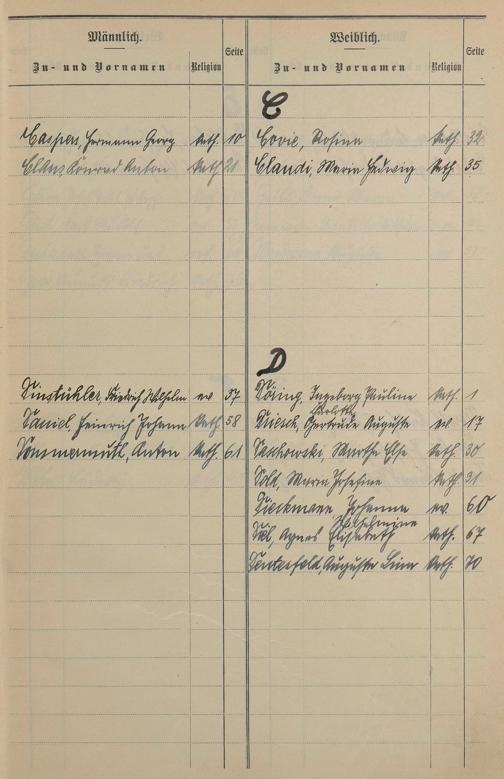 Männlich.
Zu- und Vornamen Religion Seite
Weiblich.
Zu- und Vornamen Religion Seite
C
Caspers, Hermann Georg kath. 10
Clanz, Konrad Anton kath. 21
Covic, Rosina kath. 32
Claudi, Maria Hedwig kath. 35
D
Dinstühler, Friedrich Wilhelm ev 57
Daniel, Heinrich Johann kath. 58
Anton kath. 61
Döring, Ingeborg Pauline kath. 1
Charlotte
Driesch, Gertrude Auguste ev 17
Daschowski, Martha Else kath. 30
Dold, Maria Josefine kath. 31
Dieckmann Johanna ev 60
Wilhelmine
Agnes Elisabeth kath. 67
Dusterfeld, Auguste kath. 70